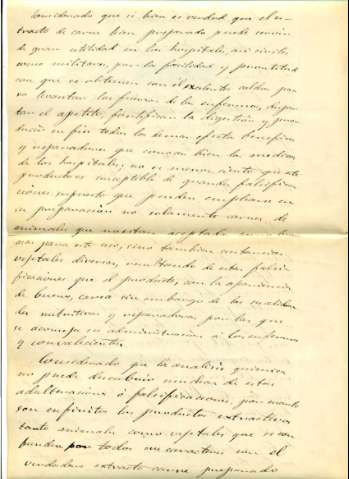 Considerando que si bien es verdad que el ex-
tracto de carne bien preparado puede servir
de gran utilidad en los hospitales, así civiles
como militares, por la facilidad y prontitud
con que se obtienen con él excelentes caldos para
levantar las fuerzas de los enfermos, desper-
tar el apetito, fortifican la digestión y pro-
ducir en fin todos los demás efectos benéficos
y reparadores que conocen bien los médicos
de los hospitales; no es menos cierto que este
producto es susceptible de grandes falsifica-
ciones, supuesto que pueden emplearse en
su preparación no solamente carnes de
animales que no estan aceptados
para este uso, sino también sustancias
vejetales diversas, resultando de estas falsi-
ficaciones que el producto, con la apariencia
de bueno, carece sin embargo de las cualida-
des nutritivas y reparadoras por las que
se aconseja su administración á los enfermos
y convalecientes.
Considerando que la análisis química
no puede descubrir muchas de estas
adulteraciones ó falsificaciones, por cuanto
son infinitos los productos extractivos
tanto animales como vejetales que se con-
funden por todos sus caracteres con el
verdadero extracto carne preparado